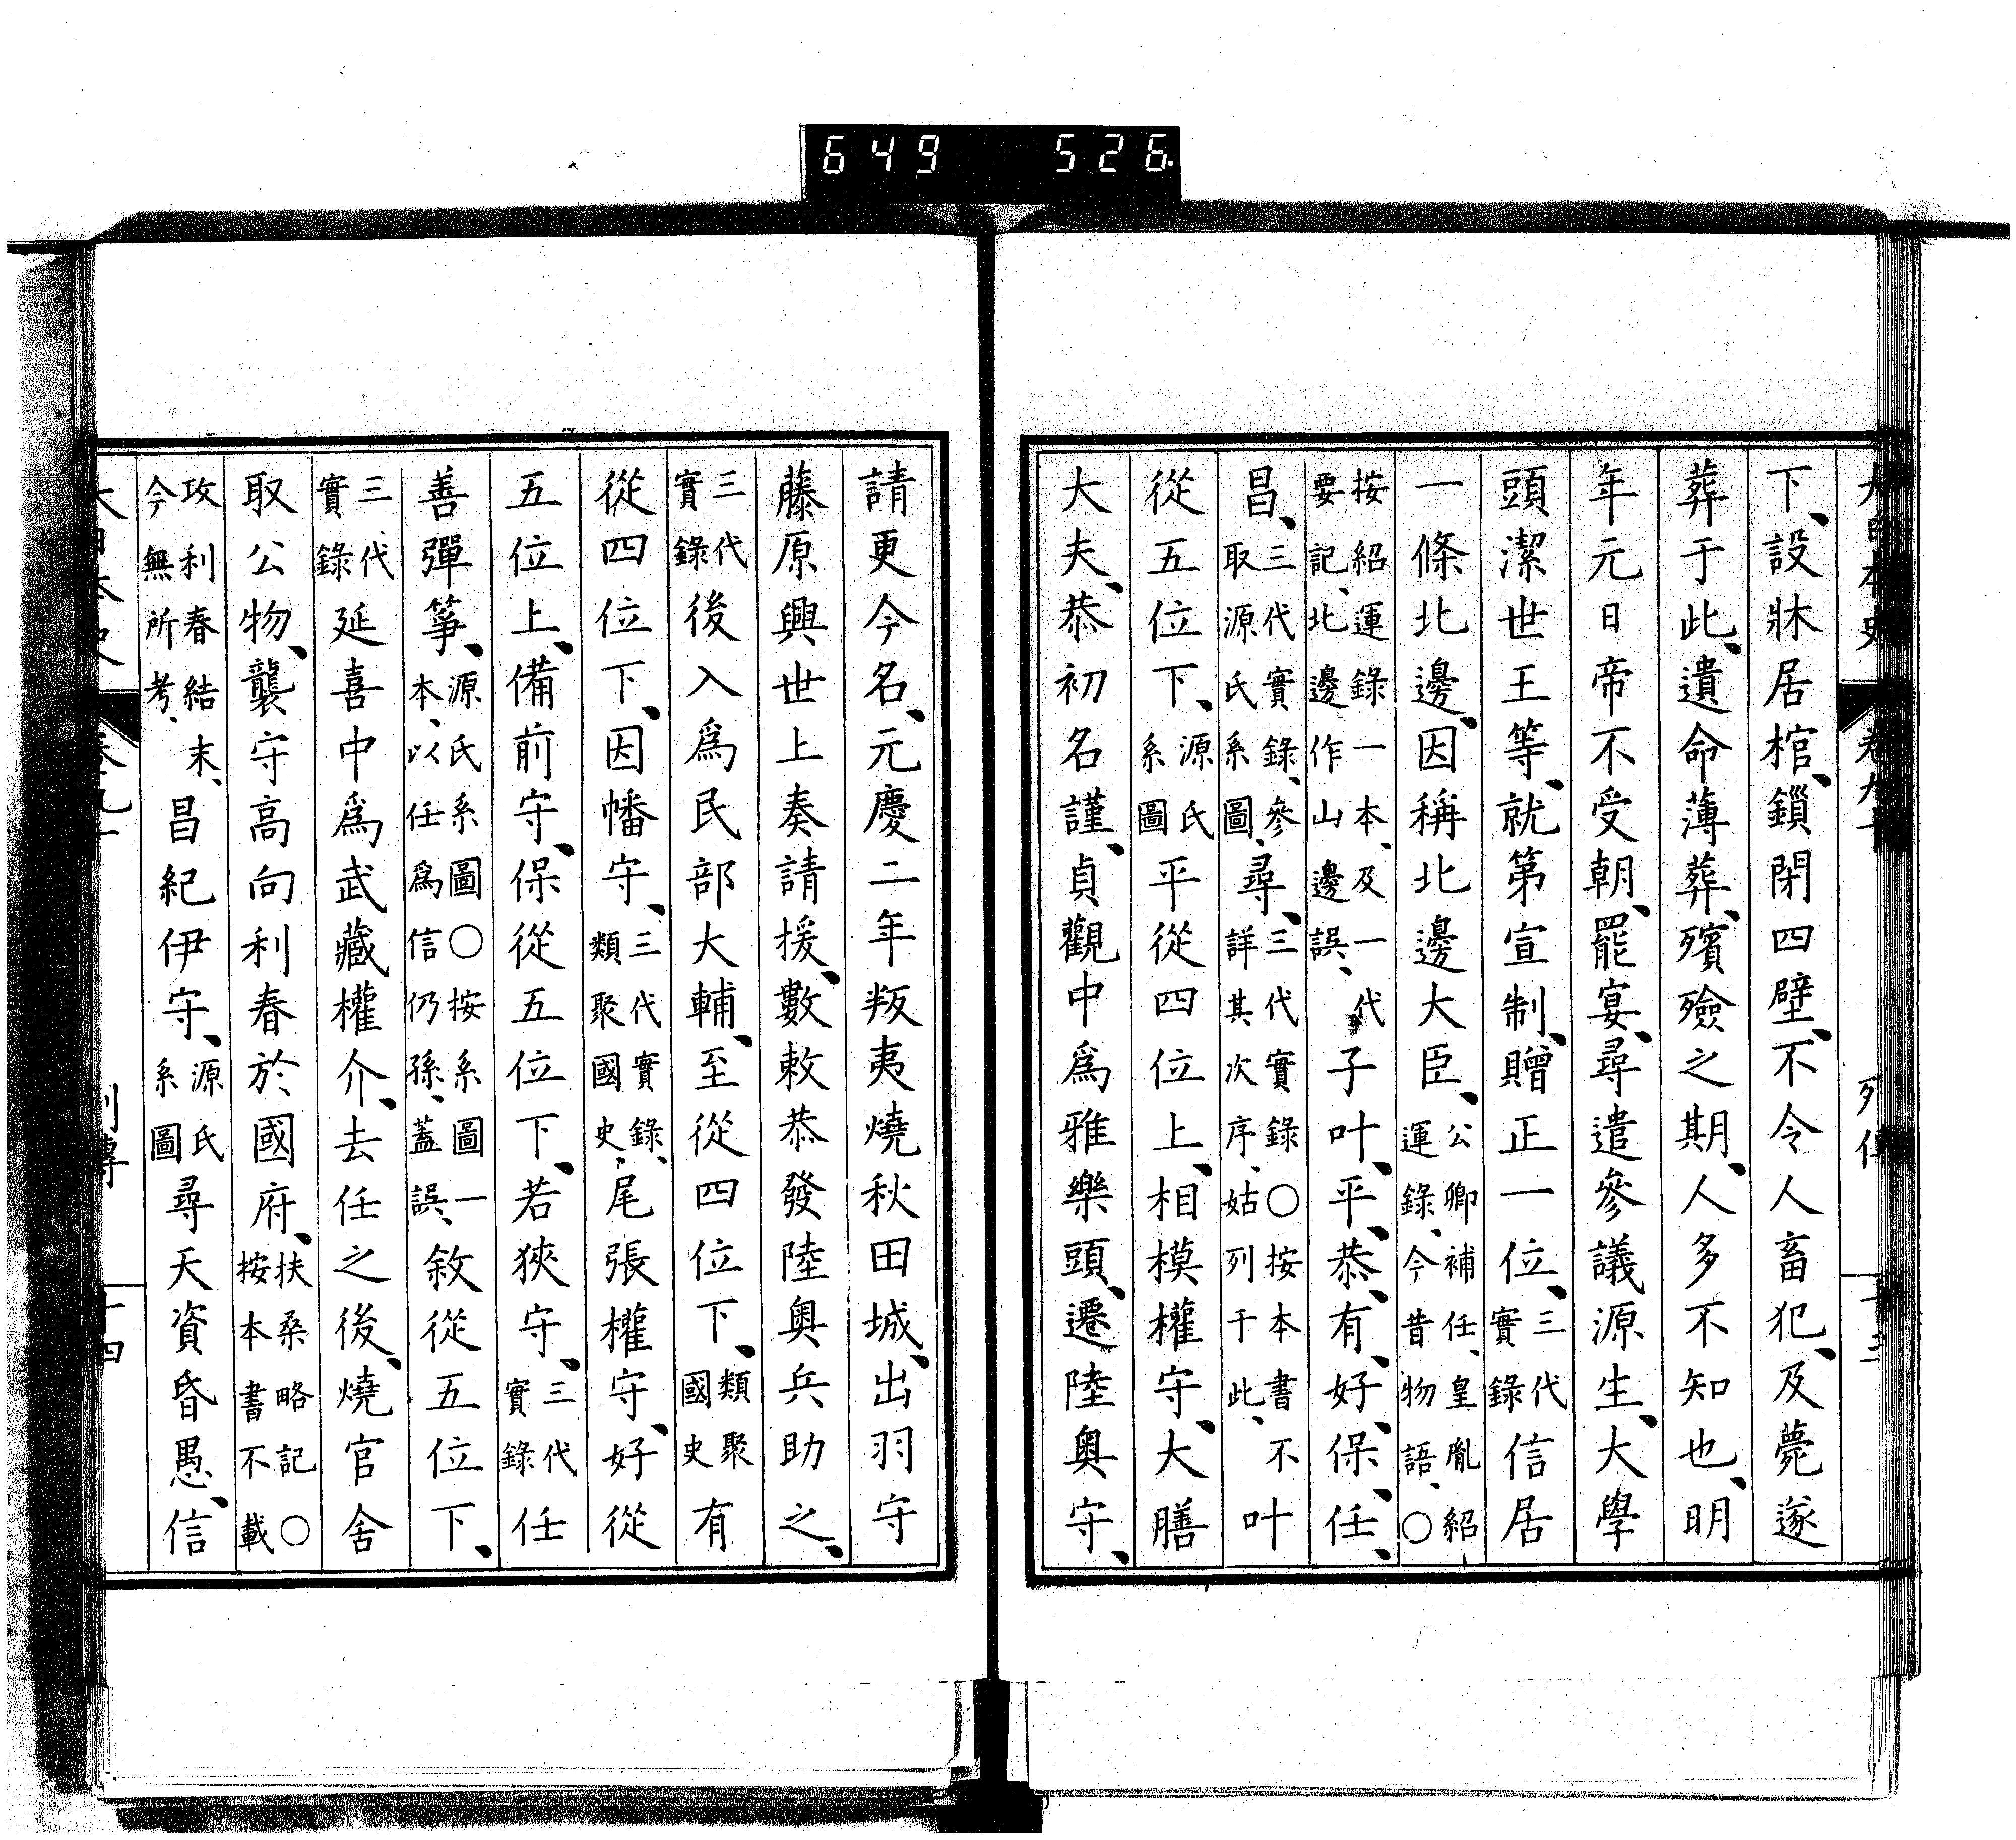 649 526
下、設牀居棺、鎖閉四壁、不令人畜犯、及薨遂
葬于此、遺命薄葬、殯殮之期、人多不知也、明
年元日帝不受朝、罷宴、尋遣參議源生、大學
頭潔世王等、就第宣制、贈正一位、三代實錄信居
一條北邊、因稱北邊大臣、公卿補任、皇胤紹運錄、今昔物語、○
按紹運錄一本、及一代要記、北邊作山邊誤、子叶、平、恭、有、好、保、任、
昌、三代實錄、參取源氏系圖、尋、三代實錄○按本書不詳其次序、姑列于此、叶
從五位下、源氏系圖平從四位上、相模權守、大膳
大夫、恭初名謹、貞觀中爲雅樂頭、遷陸奧守、
請更今名、元慶二年叛夷燒秋田城、出羽守
藤原興世上奏請援、數敕恭發陸奧兵助之、
三代實錄後入爲民部大輔、至從四位下、類聚國史有
從四位下、因幡守、三代實錄、類聚國史、尾張權守、好從
五位上、備前守、保從五位下、若狹守、三代實錄任
善彈箏、源氏系圖○按系圖一本、以任爲信仍孫、蓋誤、敘從五位下、
三代實錄延喜中爲武藏權介、去任之後、燒官舍
取公物、襲守高向利春於國府、扶桑略記○按本書不載
攻利春結末、今無所考、昌紀伊守、源氏系圖尋天資昏愚、信
大日本史 卷九十 列傳 十四